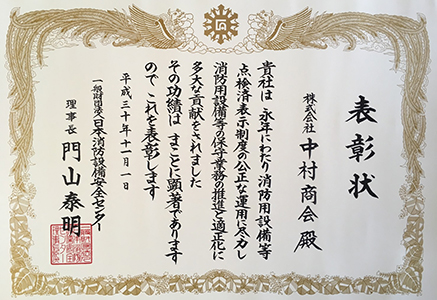 表彰状
株式会社 中村商会 殿
貴社は 永年にわたり消防用設備等
点検済表示制度の公正な運用に尽力し
消防用設備等の保守業務の推進と適正化に
多大な貢献をされました
その功績は まことに顕著であります
ので これを表彰します
平成三十年十一月一日
一般財団法人日本消防設備安全センター
理事長 門山泰明